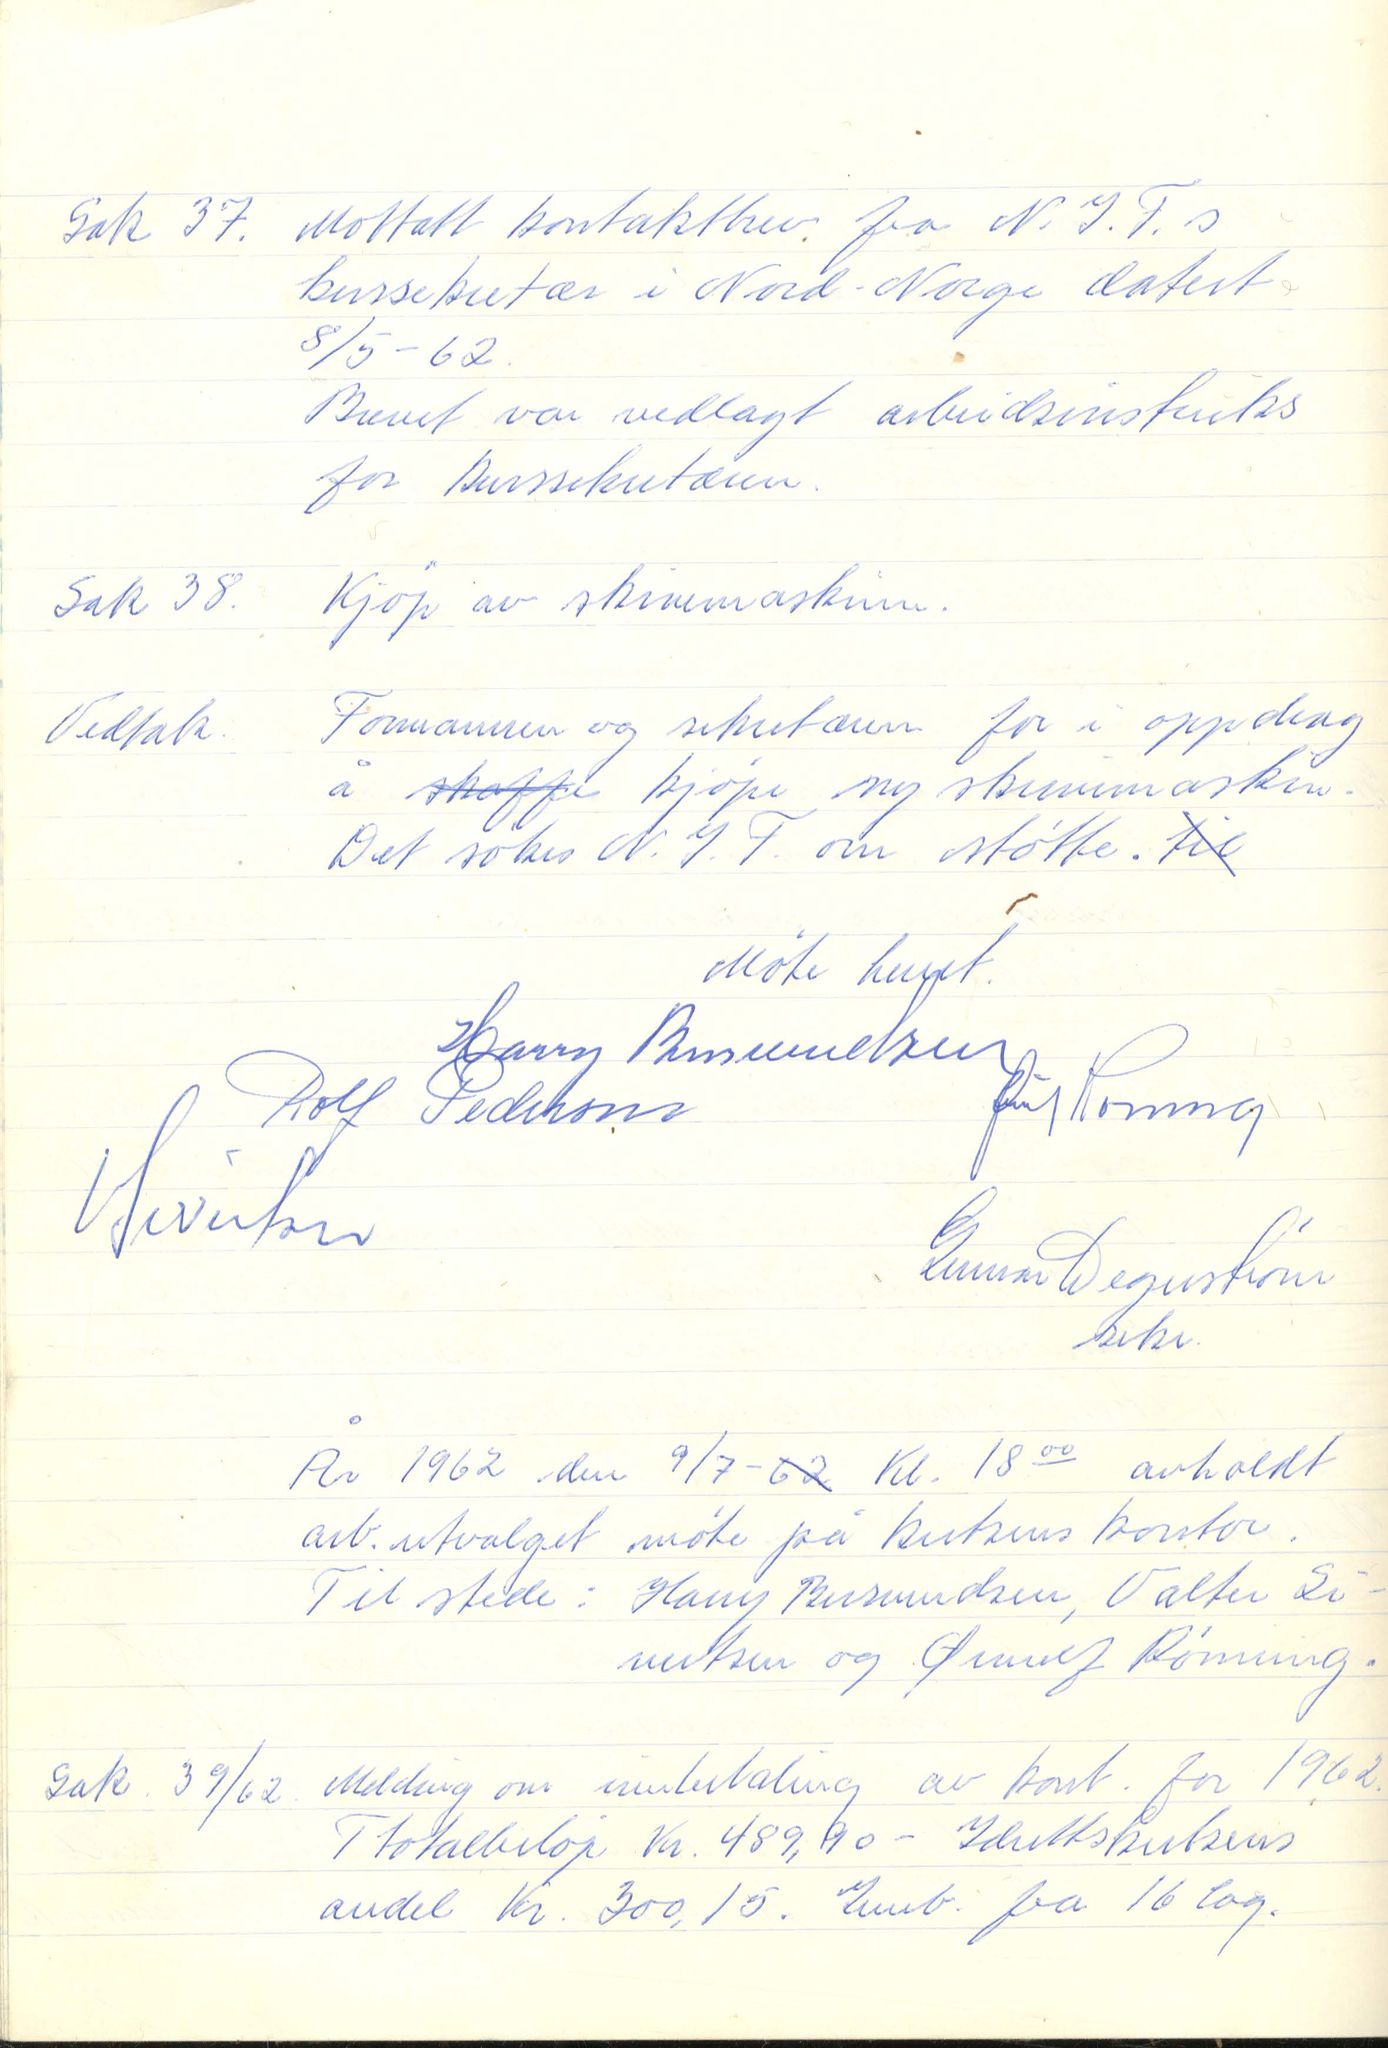 Sak 37. Mottatt kontaktbrev fra N.I.F.s
kurssekretær i Nord-Norge datert
8/5-62.
Brevet var vedlagt arbeidsinstruks
for kurssekretæren.
Sak 38. Kjöp av skrivemaskine.
Vedtak. Formannen og sekretæren for i oppdrag
å skaffe kjöpe ny skrivemaskin.
Det sökes N.I.F. om stötte. til
Möte hevet.
Harry
Rolf Pedersen
Gunnar Degerström
sekr.
År 1962 den 9/7-62 Kl. 18 00 avholdt
arb.utvalget möte på kretsens kontor.
Til stede: Harry Valter Si-
vertsen og Ørnulf Rönning.
Sak 39/62. Melding om innbetaling av kont. for 1962.
Ttotalbelöp Kr. 489,90 - Idrettskretsens
andel Kr. 300,15. Innb. fra 16 lag.